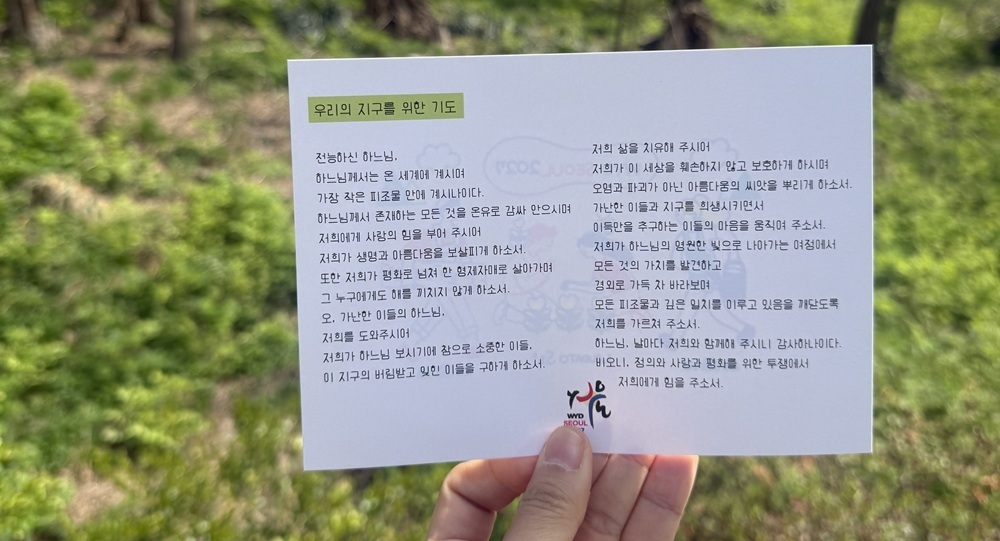 우리의 지구를 위한 기도
전능하신 하느님,
하느님께서는 온 세계에 계시며
가장 작은 피조물 안에 계시나이다.
하느님께서 존재하는 모든 것을 온유로 감싸 안으시며
저희에게 사랑의 힘을 부어 주시어
저희가 생명과 아름다움을 보살피게 하소서.
또한 저희가 평화로 넘쳐 한 형제자매로 살아가며
그 누구에게도 해를 끼치지 않게 하소서.
오, 가난한 이들의 하느님,
저희를 도와주시어
저희가 하느님 보시기에 참으로 소중한 이들,
이 지구의 버림받고 잊힌 이들을 구하게 하소서.
저희 삶을 치유해 주시어
저희가 이 세상을 훼손하지 않고 보호하게 하시며
오염과 파괴가 아닌 아름다움의 씨앗을 뿌리게 하소서.
가난한 이들과 지구를 희생시키면서
이득만을 추구하는 이들의 마음을 움직여 주소서.
저희가 하느님의 영원한 빛으로 나아가는 여정에서
모든 것의 가치를 발견하고
경외로 가득 차 바라보며
모든 피조물과 깊은 일치를 이루고 있음을 깨닫도록
저희를 가르쳐 주소서.
하느님, 날마다 저희와 함께해 주시니 감사하나이다.
비오니, 정의와 사랑과 평화를 위한 투쟁에서
저희에게 힘을 주소서.
WYD
SEOUL